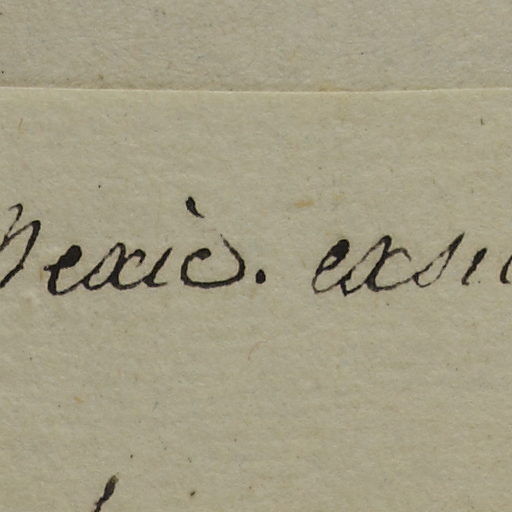 Mexic. exsic